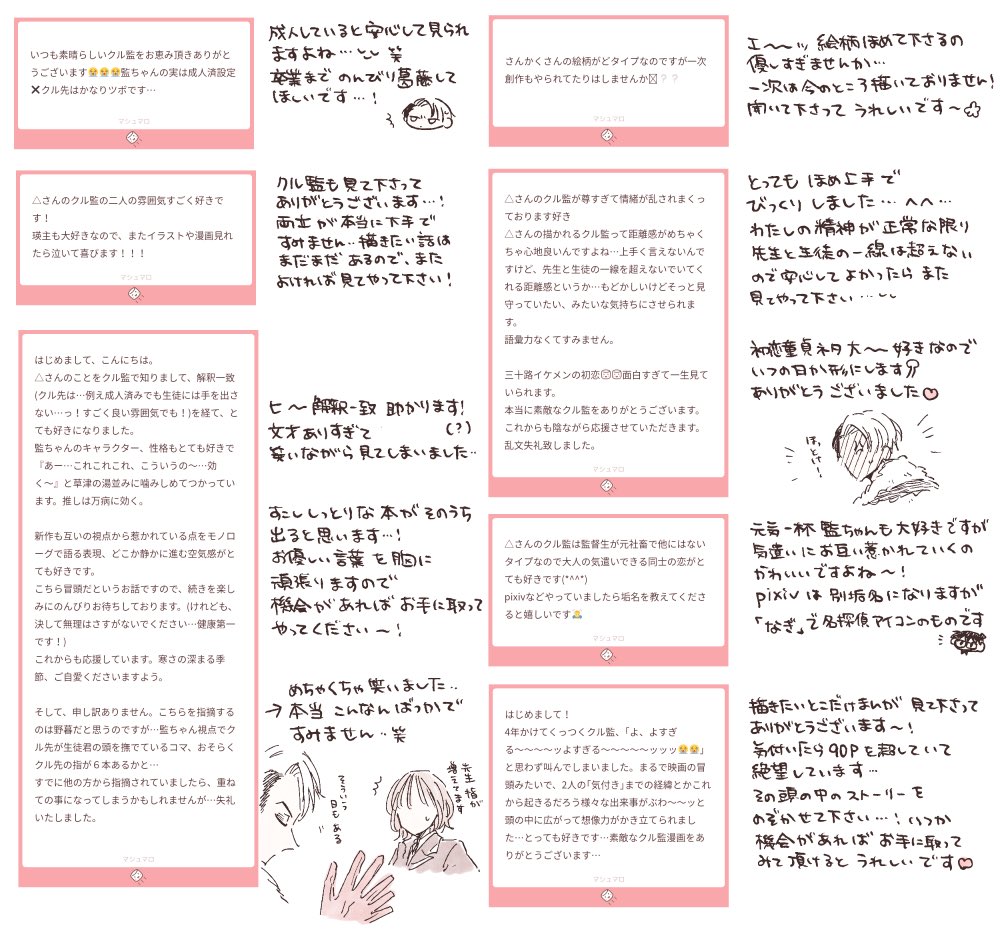 いつも素晴らしいクル監をお恵み頂きありがと
うございます😭😭😭監ちゃんの実は成人済設定
❌クル先はかなりツボです…
マシュマロ
成人していると安心して見られ
ますよね…とし 笑
卒業まで のんびり葛藤して
ほしいです…！
△さんのクル監の二人の雰囲気すごく好きで
す！
瑛主も大好きなので、またイラストや漫画見れ
たら泣いて喜びます！！！
マシュマロ
クル監も見て下さって
ありがとうございます…！
両立が本当に下手で
すみません‥描きたい話は
まだまだ あるので、また
よければ見てやって下さい！
はじめまして、こんにちは。
△さんのことをクル監で知りまして、解釈一致
(クル先は…例え成人済みでも生徒には手を出さ
ない…っ！すごく良い雰囲気でも！)を経て、と
ても好きになりました。
監ちゃんのキャラクター、性格もとても好きで
『あー…これこれこれ、こういうの〜…効
く〜』と草津の湯並みに噛みしめてつかってい
ます。推しは万病に効く。
新作も互いの視点から惹かれている点をモノロ
ーグで語る表現、どこか静かに進む空気感がと
ても好きです。
こちら冒頭だというお話ですので、続きを楽し
みにのんびりお待ちしております。(けれども、
決して無理はさすがないでください…健康第一
です！)
これからも応援しています。寒さの深まる季
節、ご自愛くださいますよう。
そして、申し訳ありません。こちらを指摘する
のは野暮だと思うのですが…監ちゃん視点でク
ル先が生徒君の頭を撫でているコマ、おそらく
クル先の指が６本あるかと…
すでに他の方から指摘されていましたら、重ね
ての事になってしまうかもしれませんが…失礼
いたしました。
マシュマロ
ヒ〜解釈一致 助かります！
(？)
文才ありすぎて
笑いながら見てしまいました‥
すこししっとりな本がそのうち
出ると思います…！
お優しい言葉を胸に
頑張りますので
機会があれば お手に取って
やってください〜！
めちゃくちゃ笑いました‥
→本当 こんなんばっかで
すみません‥笑
そういう
日もある
先生 指が
増えてます
さんかくさんの絵柄がどタイプなのですが一次
創作もやられてたりはしませんか❔❔
マシュマロ
エ〜〜ッ 絵柄ほめて下さるの
優しすぎませんか…
一次は今のところ描いておりません！
聞いて下さって うれしいです〜
△さんのクル監が尊すぎて情緒が乱されまくっ
ております好き
△さんの描かれるクル監って距離感がめちゃく
ちゃ心地良いんですよね…上手く言えないんで
すけど、先生と生徒の一線を超えないでいてく
れる距離感というか…もどかしいけどそっと見
守っていたい、みたいな気持ちにさせられま
す。
語彙力なくてすみません。
三十路イケメンの初恋面白すぎて一生見て
いられます。
本当に素敵なクル監をありがとうございます。
これからも陰ながら応援させていただきます。
乱文失礼致しました。
マシュマロ
とっても ほめ上手で
びっくり しました… へへ…
わたしの精神が正常な限り
先生と生徒の一線は超えない
ので安心して よかったら また
見てやって下さい…
初恋童貞ネタ大〜〜好きなので
いつの日か形にします
ありがとう ございました
ほっとけ！
△さんのクル監は監督生が元社畜で他にはない
タイプなので大人の気遣いできる同士の恋がと
ても好きです(*^^*)
pixivなどやっていましたら垢名を教えてくださ
ると嬉しいです🙇
マシュマロ
元気一杯 監ちゃんも大好きですが
気遣いにお互い惹かれていくの
かわいいですよね〜！
pixiv は 別垢名になりますが
「なぎ」で名探偵アイコンのものです
はじめまして！
4年かけてくっつくクル監、「よ、よすぎ
る〜〜〜〜ッよすぎる〜〜〜〜〜ッッッ😭😭」
と思わず叫んでしまいました。まるで映画の冒
頭みたいで、2人の「気付き」までの経緯とかこれ
から起きるだろう様々な出来事がぶわ〜〜ッと
頭の中に広がって想像力がかき立てられまし
た…とっても好きです…素敵なクル監漫画をあ
りがとうございます…
マシュマロ
描きたいとこだけまんが 見て下さって
ありがとうございます〜！
気付いたら90Pを超していて
絶望しています…
その頭の中のストーリーを
のぞかせて下さい…！いつか
機会があれば お手に取って
みて頂けると うれしいです